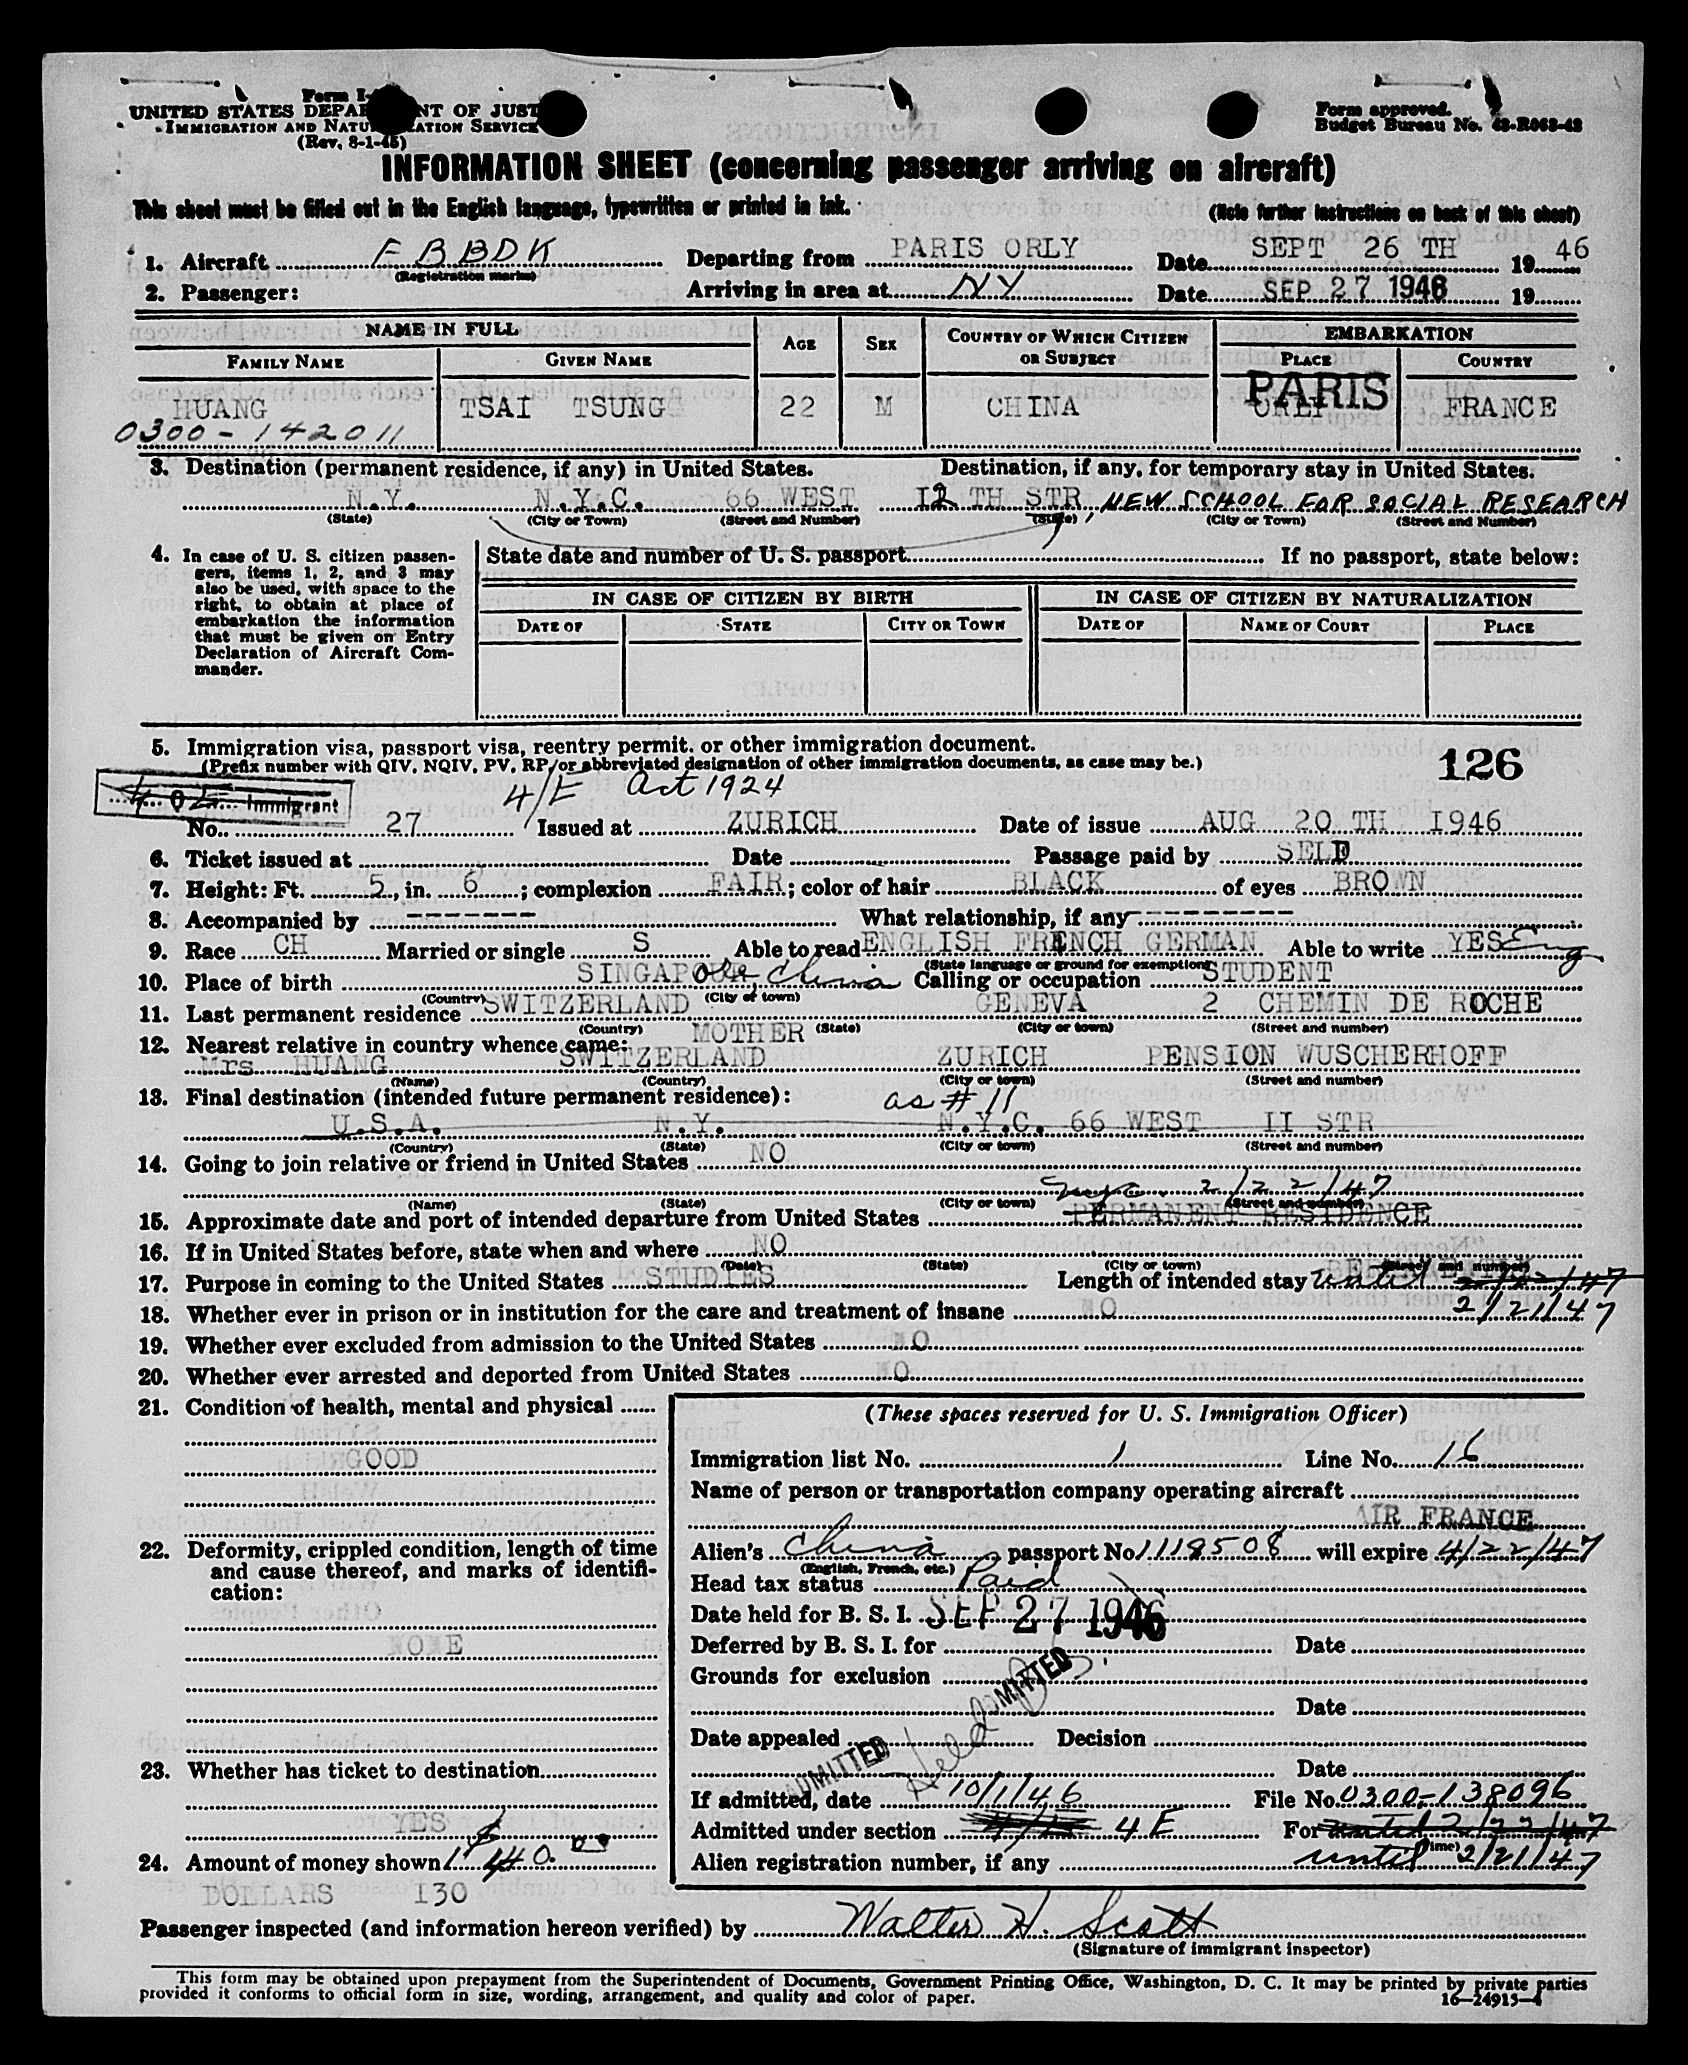 Form I-
UNITED STATES DEPA NT OF JUST
IMMIGRATION AND NATU ATION SERVICE
(Rev. 8-1-45)
Form approved.
Budget Bureau No. 43-R063-42
INFORMATION SHEET (concerning passenger arriving on aircraft)
This sheet must be filled out in the English language, typewritten or printed in ink.
(Note further instructions on back of this sheet)
1. Aircraft F BBDK Departing from PARIS ORLY Date SEPT 26 TH 19 46
(Registration marks)
2. Passenger: Arriving in area at NY Date SEP 27 1946 19
NAME IN FULL AGE SEX COUNTRY OF WHICH CITIZEN OR SUBJECT EMBARKATION
FAMILY NAME GIVEN NAME PLACE COUNTRY
HUANG TSAI TSUNG 22 M CHINA PARIS ORLY FRANCE
0300-142011
3. Destination (permanent residence, if any) in United States. Destination, if any, for temporary stay in United States.
N.Y. N.Y.C. 66 WEST 12 TH STR, NEW SCHOOL FOR SOCIAL RESEARCH
(State) (City or Town) (Street and Number) (State) (City or Town) (Street and Number)
4. In case of U. S. citizen passen-
gers, items 1, 2, and 3 may
also be used, with space to the
right, to obtain at place of
embarkation the information
that must be given on Entry
Declaration of Aircraft Com-
mander.
State date and number of U. S. passport If no passport, state below:
IN CASE OF CITIZEN BY BIRTH IN CASE OF CITIZEN BY NATURALIZATION
DATE OF STATE CITY OR TOWN DATE OF NAME OF COURT PLACE
5. Immigration visa, passport visa, reentry permit, or other immigration document.
(Prefix number with QIV, NQIV, PV, RP, or abbreviated designation of other immigration documents, as case may be.)
126
Immigrant 4/E Act 1924
No. 27 Issued at ZURICH Date of issue AUG 20 TH 1946
6. Ticket issued at Date Passage paid by SELF
7. Height: Ft. 5, in. 6; complexion FAIR; color of hair BLACK of eyes BROWN
8. Accompanied by ------- What relationship, if any ---------
9. Race CH Married or single S Able to read ENGLISH FRENCH GERMAN Able to write YES Eng
(State language or ground for exemption)
10. Place of birth SINGAPORE, China Calling or occupation STUDENT
(Country) (City or town)
11. Last permanent residence SWITZERLAND GENEVA 2 CHEMIN DE ROCHE
(Country) (State) (City or town) (Street and number)
12. Nearest relative in country whence came: MOTHER
Mrs HUANG SWITZERLAND ZURICH PENSION WUSCHERHOFF
(Name) (Country) (City or town) (Street and number)
13. Final destination (intended future permanent residence): as # 11
U.S.A. N.Y. N.Y.C. 66 WEST II STR
(Country) (State) (City or town) (Street and number)
14. Going to join relative or friend in United States NO
(Name) (State) (City or town) (Street and number)
2/22/47
15. Approximate date and port of intended departure from United States PERMANENT RESIDENCE
16. If in United States before, state when and where NO
(Date) (State) (City or town) (Street and number)
17. Purpose in coming to the United States STUDIES Length of intended stay until 2/22/47
2/21/47
18. Whether ever in prison or in institution for the care and treatment of insane NO
19. Whether ever excluded from admission to the United States NO
20. Whether ever arrested and deported from United States NO
21. Condition of health, mental and physical
GOOD
22. Deformity, crippled condition, length of time
and cause thereof, and marks of identifi-
cation:
NONE
23. Whether has ticket to destination
YES
24. Amount of money shown 140.00
DOLLARS 130
(These spaces reserved for U. S. Immigration Officer)
Immigration list No. 1 Line No. 16
Name of person or transportation company operating aircraft
AIR FRANCE
Alien's China passport No. 1118508 will expire 4/22/47
(English, French, etc.)
Head tax status Paid
Date held for B. S. I. SEP 27 1946
Deferred by B. S. I. for Date
Grounds for exclusion
Date
Date appealed Decision
Date
ADMITTED Held MITTED
If admitted, date 10/1/46 File No. 0300-138096
Admitted under section 4E For until 2/22/47
(Time)
Alien registration number, if any until 2/21/47
Passenger inspected (and information hereon verified) by Walter H. Scott
(Signature of immigrant inspector)
This form may be obtained upon prepayment from the Superintendent of Documents, Government Printing Office, Washington, D. C. It may be printed by private parties
provided it conforms to official form in size, wording, arrangement, and quality and color of paper.
16—24915-4